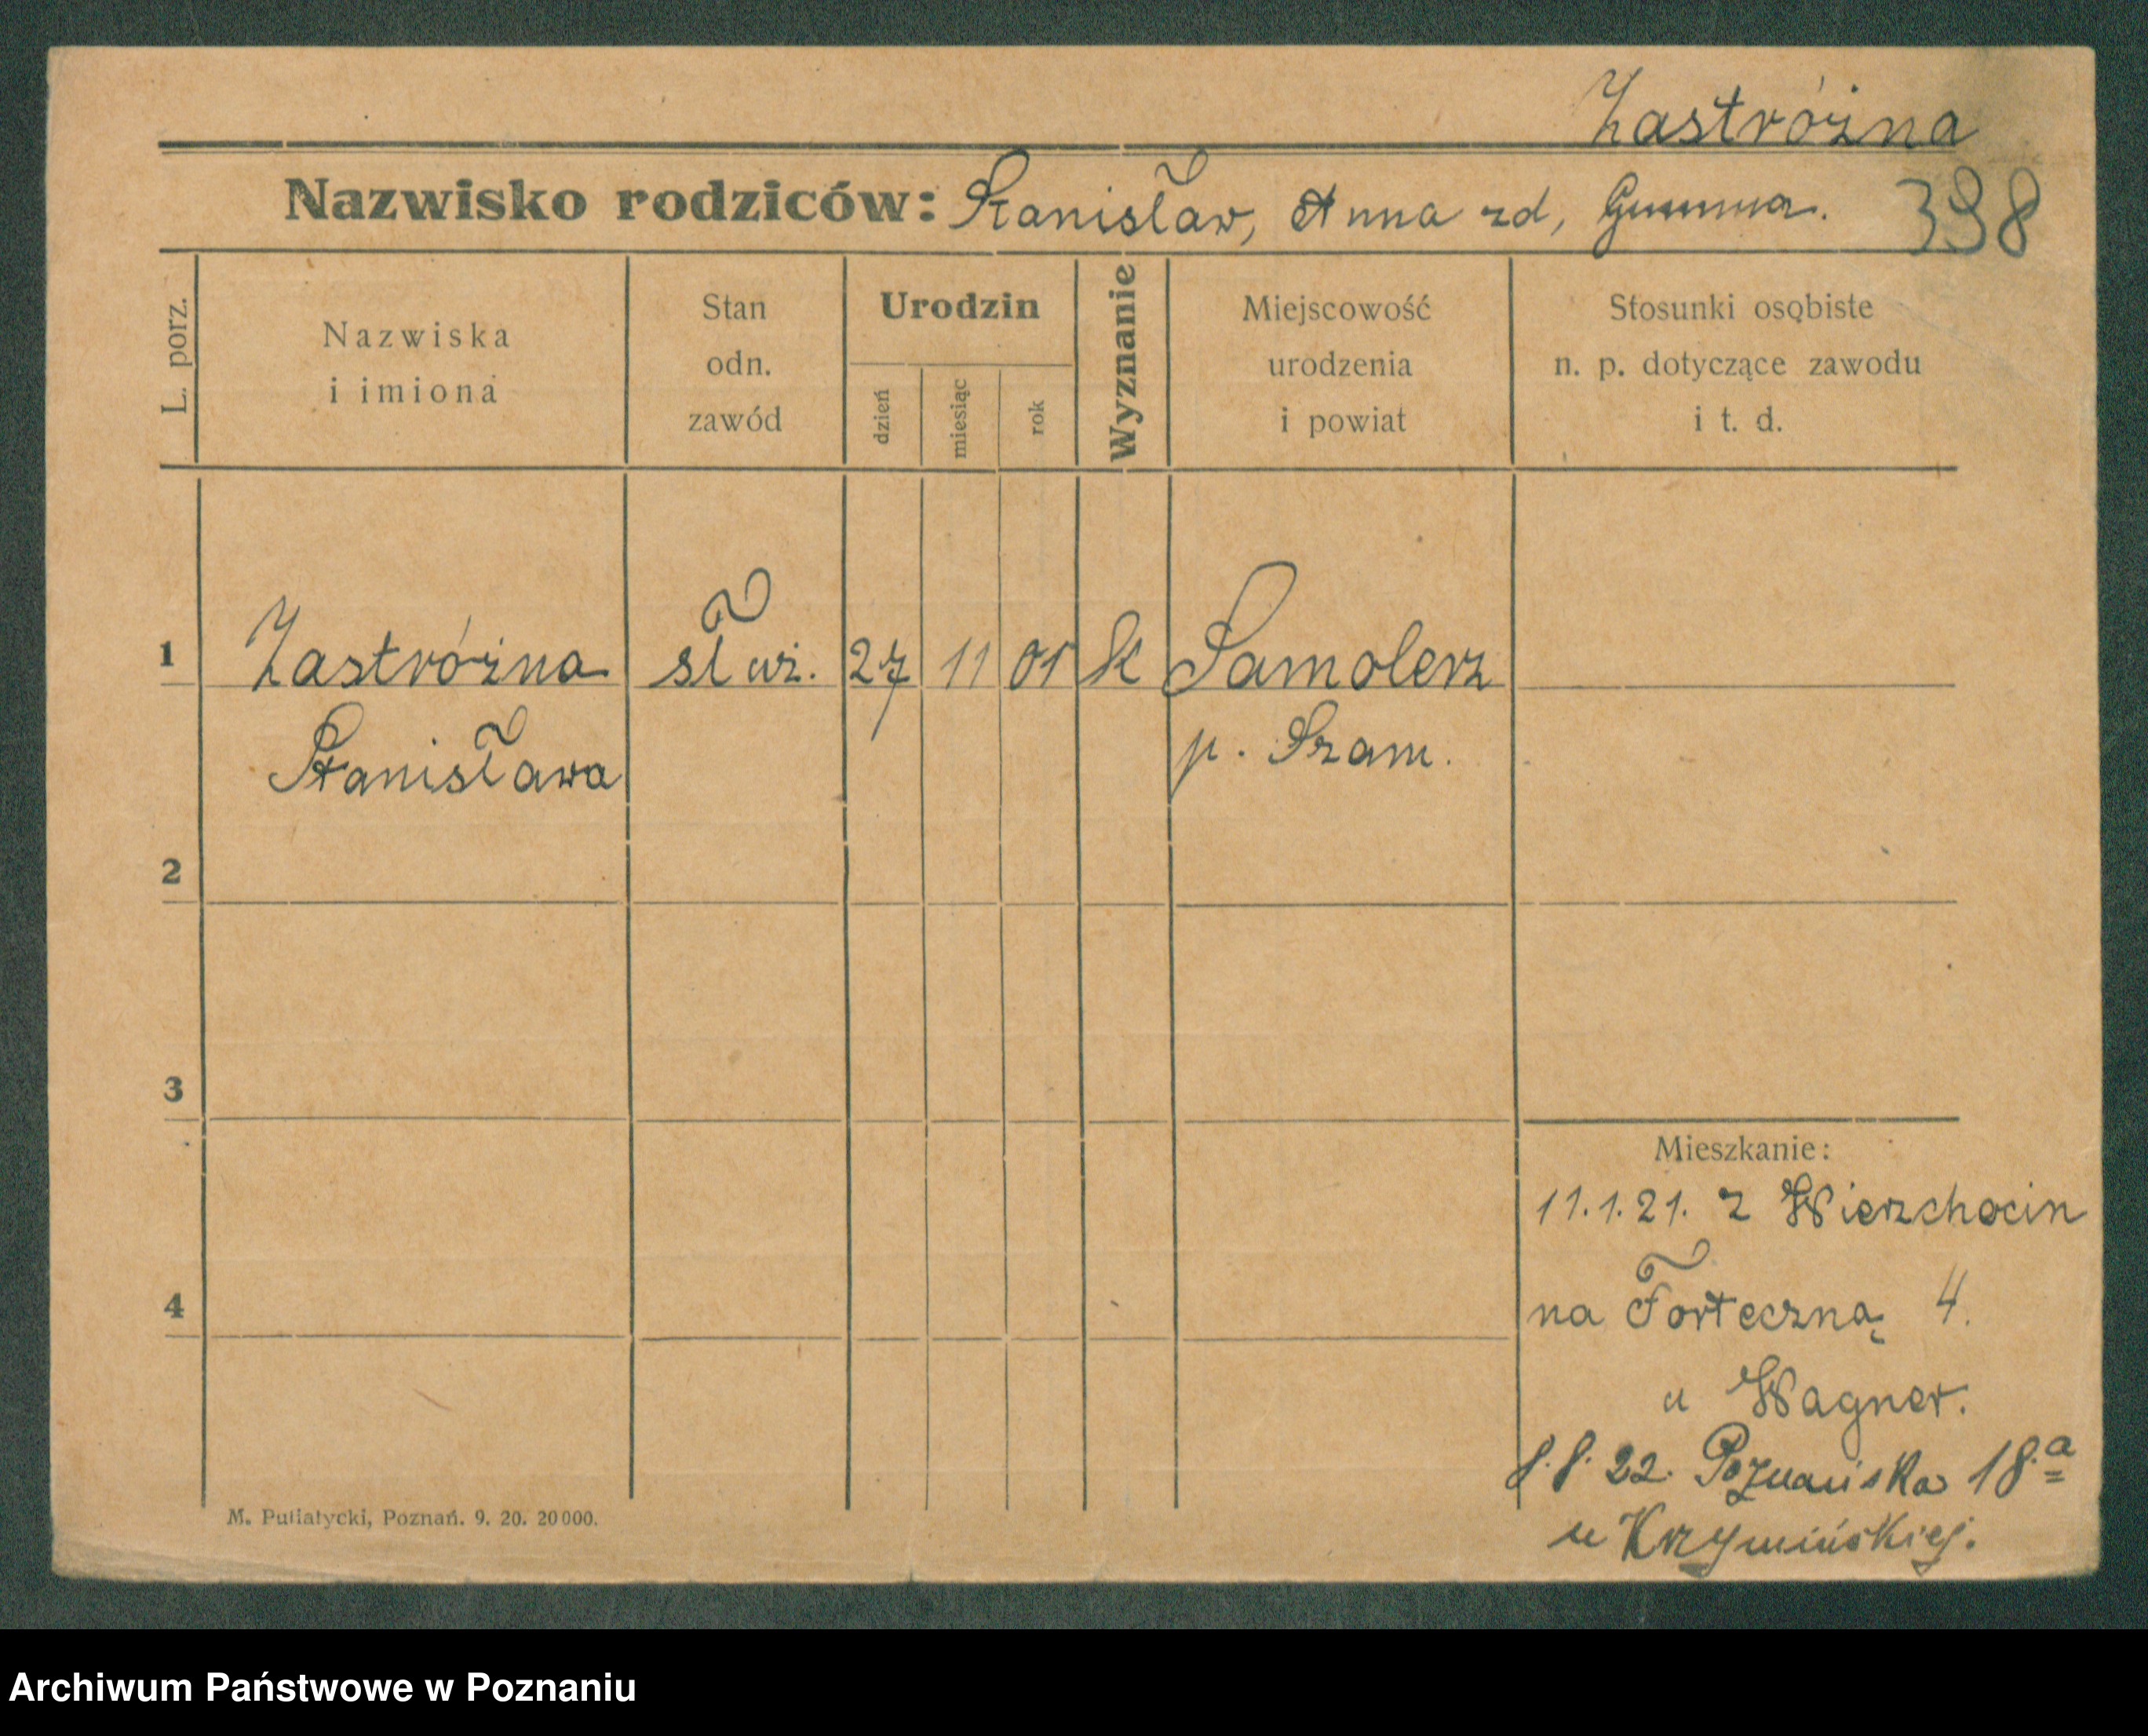 Zastróżna
Nazwisko rodziców: Stanisław, Anna zd, 398
L. porz.
Nazwiska
i imiona
Stan
odn.
zawód
Urodzin
dzień
miesiąc
rok
Wyznanie
Miejscowość
urodzenia
i powiat
Stosunki osobiste
n. p. dotyczące zawodu
i t. d.
1 Zastróżna służ. 27 11 01 k Samolerz
Stanisława p. Szam.
2
3
Mieszkanie:
11.1.21. z Wierzchocin
na Forteczną 4.
4
u Wagner.
8.8.22. Poznańska 18.a
u Krzymińskiej.
M. Putiatycki, Poznań. 9. 20. 20000.
Archiwum Państwowe w Poznaniu